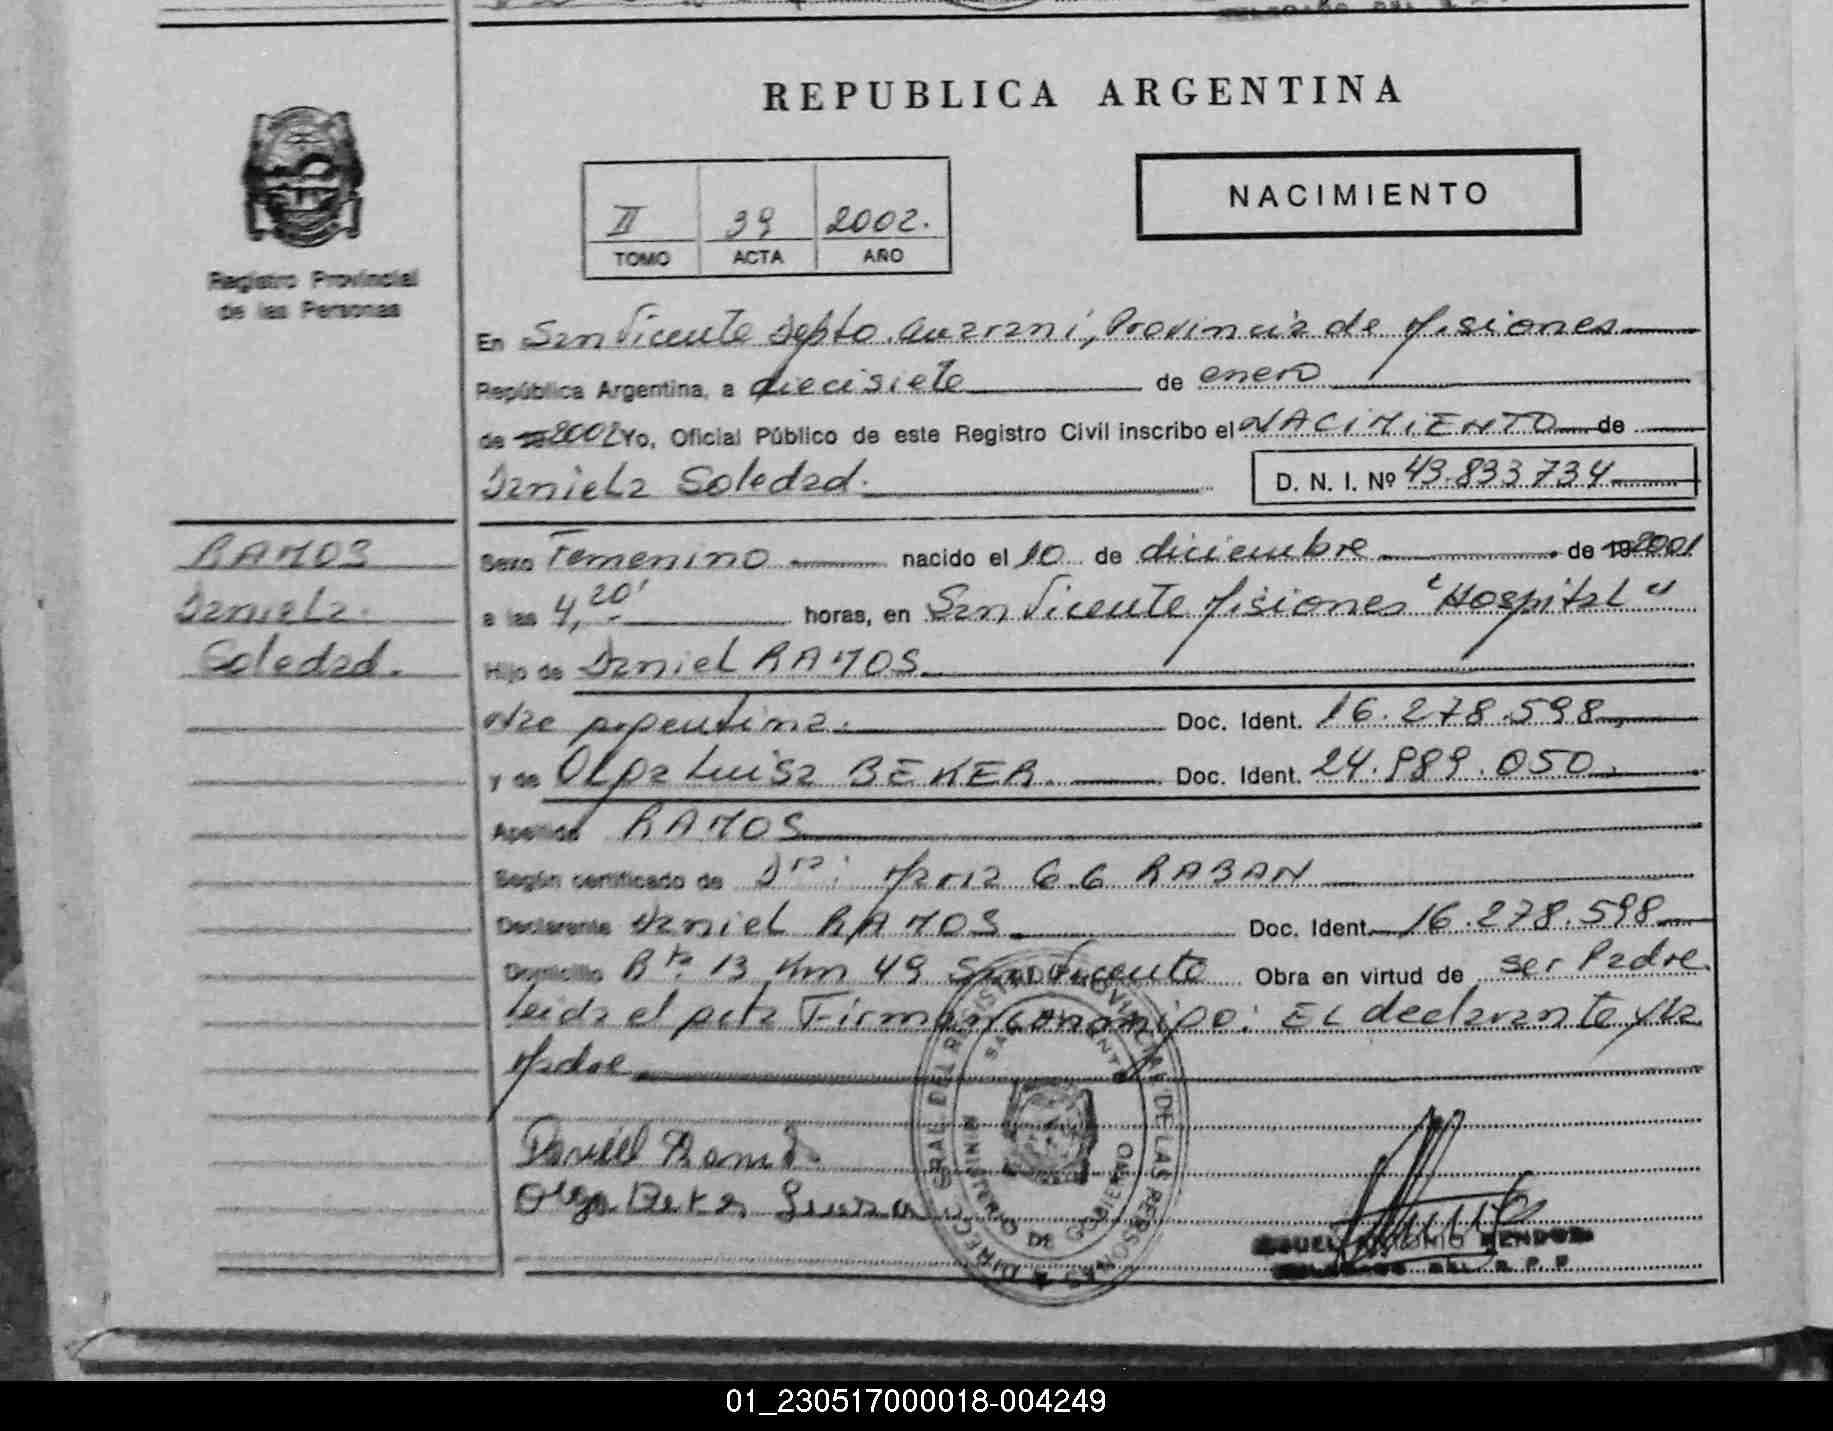 REPUBLICA ARGENTINA
NACIMIENTO
II 39 2002.
TOMO ACTA AÑO
Registro Provincial
de las Personas
En San Vicente Depto. Guarani, Provincia de Misiones
República Argentina, a diecisiete de enero
de 19 2002 Yo, Oficial Público de este Registro Civil inscribo el NACIMIENTO de
Daniela Soledad. D. N. I. Nº 43.833.734
RAMOS
Daniela
Soledad.
Sexo Femenino nacido el 10 de diciembre de 19 2001
a las 4,20' horas, en San Vicente Misiones "Hospital"
Hijo de Daniel RAMOS
Nac argentina. Doc. Ident. 16.278.598
y de Olga Luisa BEKER. Doc. Ident. 24.989.050
Apellido RAMOS
Según certificado de Dra: Maria G.G RABAN
Declarante Daniel RAMOS Doc. Ident. 16.278.598
Domicilio Bto. 13 Km 49 San Vicente Obra en virtud de ser Padre
Leida el acta Firman conmigo: El declarante y la
Madre
Daniel Ramos
Olga Beker Luisa
DIREC. GRAL. DEL REGISTRO PROVINCIAL DE LAS PERSONAS
SAN VICENTE
MINISTERIO DE GOBIERNO
ANTONIO MENDOZA
R. P. P.
01_230517000018-004249